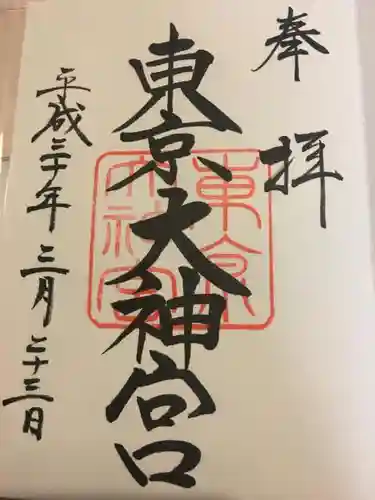 奉拝
東京大神宮
東京大神宮
平成三十年三月二十三日